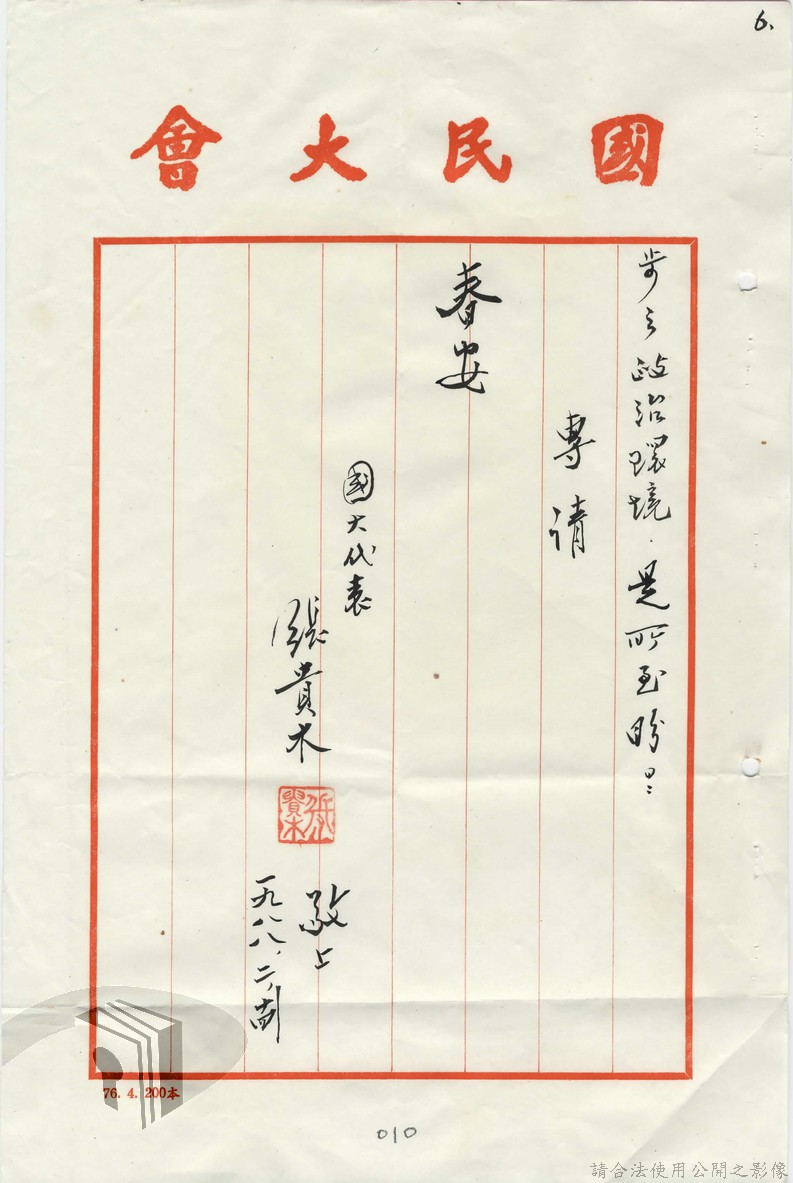 6.
國民大會
步之政治環境.是所至盼!!
專請
春安
國大代表
張貴木
張貴木
敬上
一九八八、二、
76. 4. 200本
010
請合法使用公開之影像